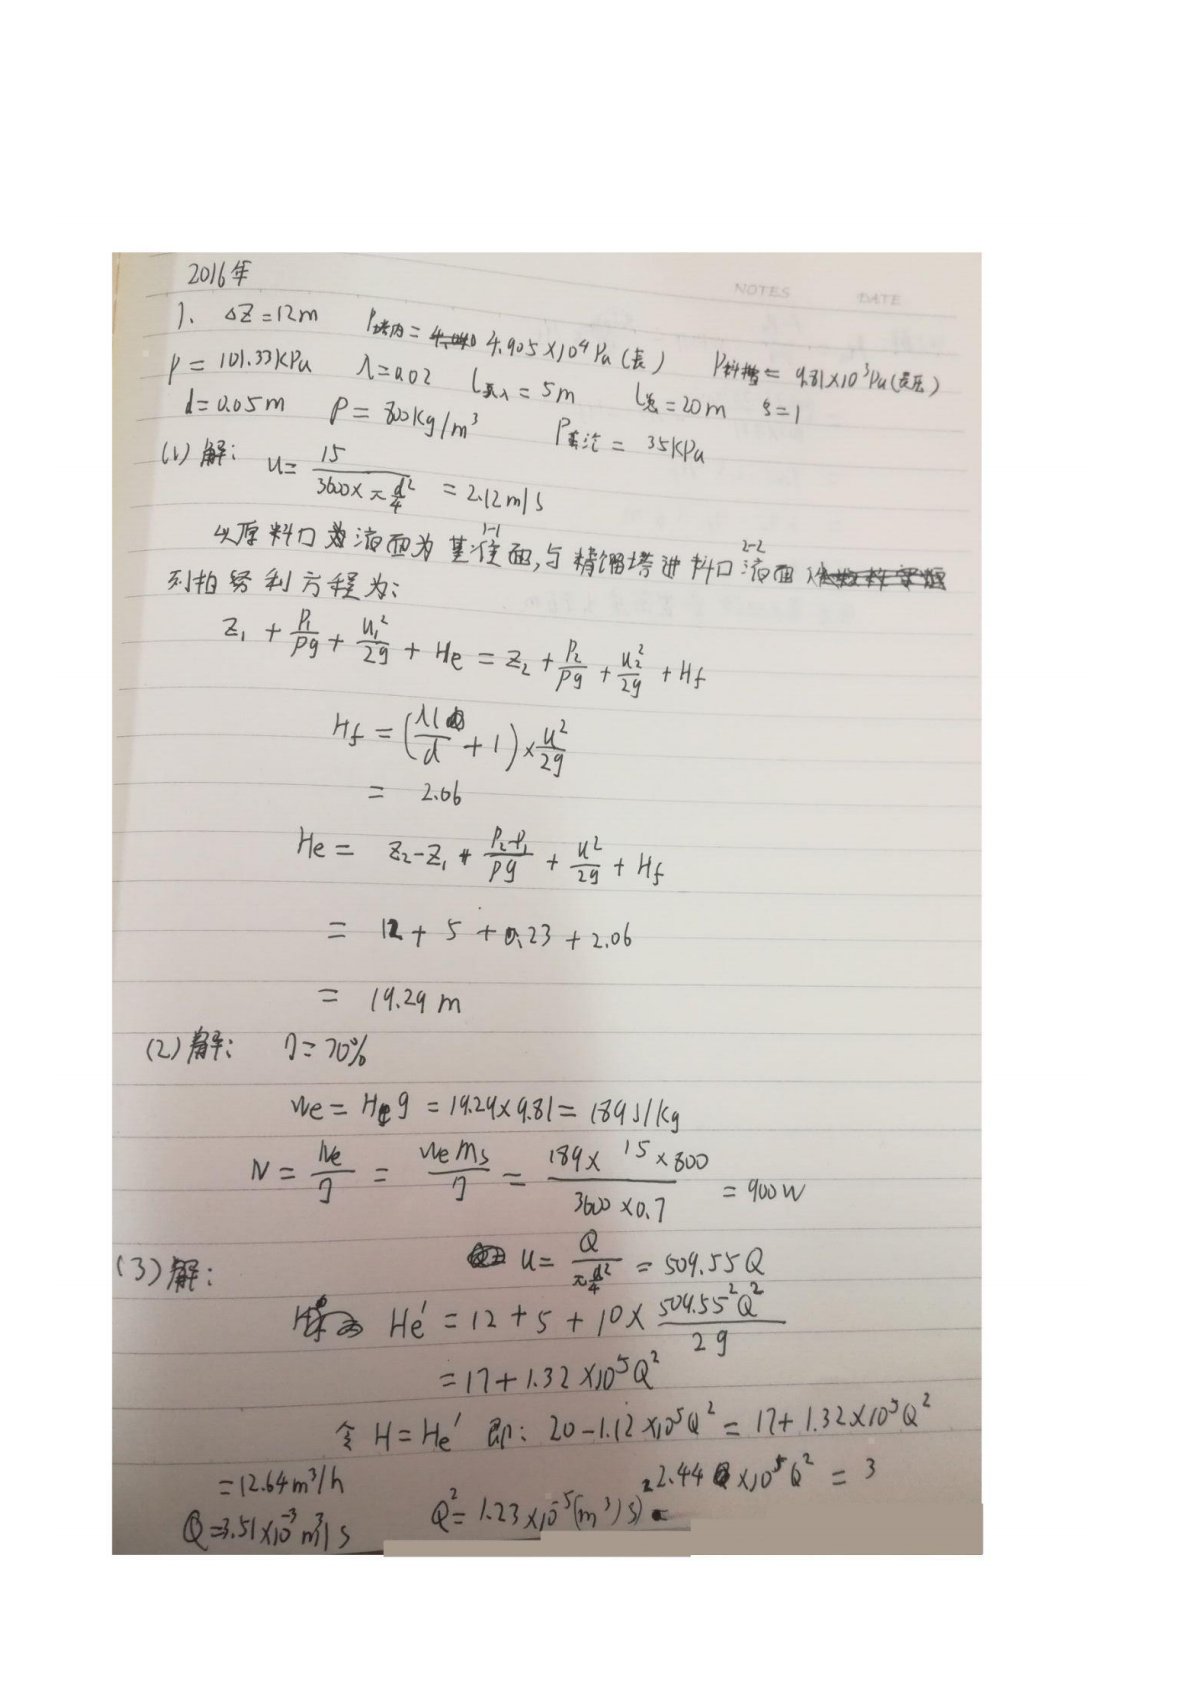 NOTES DATE
2016年
1. ΔZ=12m P塔内= 4.905×10⁴Pa(表) P料槽= 9.81×10³Pa(表压)
P= 101.33KPa λ=0.02 l吸入=5m l总=20m ξ=1
d=0.05m ρ= 800kg/m³ P蒸汽= 35KPa
(1) 解: u= 15/(3600×π d²/4) =2.12m/s
以原料口液面为基准面,与精馏塔进料口液面
1-1 2-2
列柏努利方程为:
Z₁ + P₁/ρg + u₁²/2g + He = Z₂ + P₂/ρg + u₂²/2g + Hf
Hf = (λl/d + 1)×u²/2g
= 2.06
He = Z₂-Z₁ + (P₂-P₁)/ρg + u²/2g + Hf
= 12 + 5 + 0.23 + 2.06
= 19.29 m
(2) 解: η=70%
We = Heg = 19.29×9.81 = 189J/kg
N = Ne/η = Wems/η = (189×15×800)/(3600×0.7) = 900W
(3) 解: u= Q/(π d²/4) = 509.55Q
He' = 12 + 5 + 10× 509.55²Q²/2g
= 17 + 1.32×10⁵Q²
令 H=He' 即: 20-1.12×10⁵Q² = 17+ 1.32×10⁵Q²
2.44×10⁵Q² = 3
Q² = 1.23×10⁻⁵(m³/s)²
Q=3.51×10⁻³m³/s
=12.64m³/h